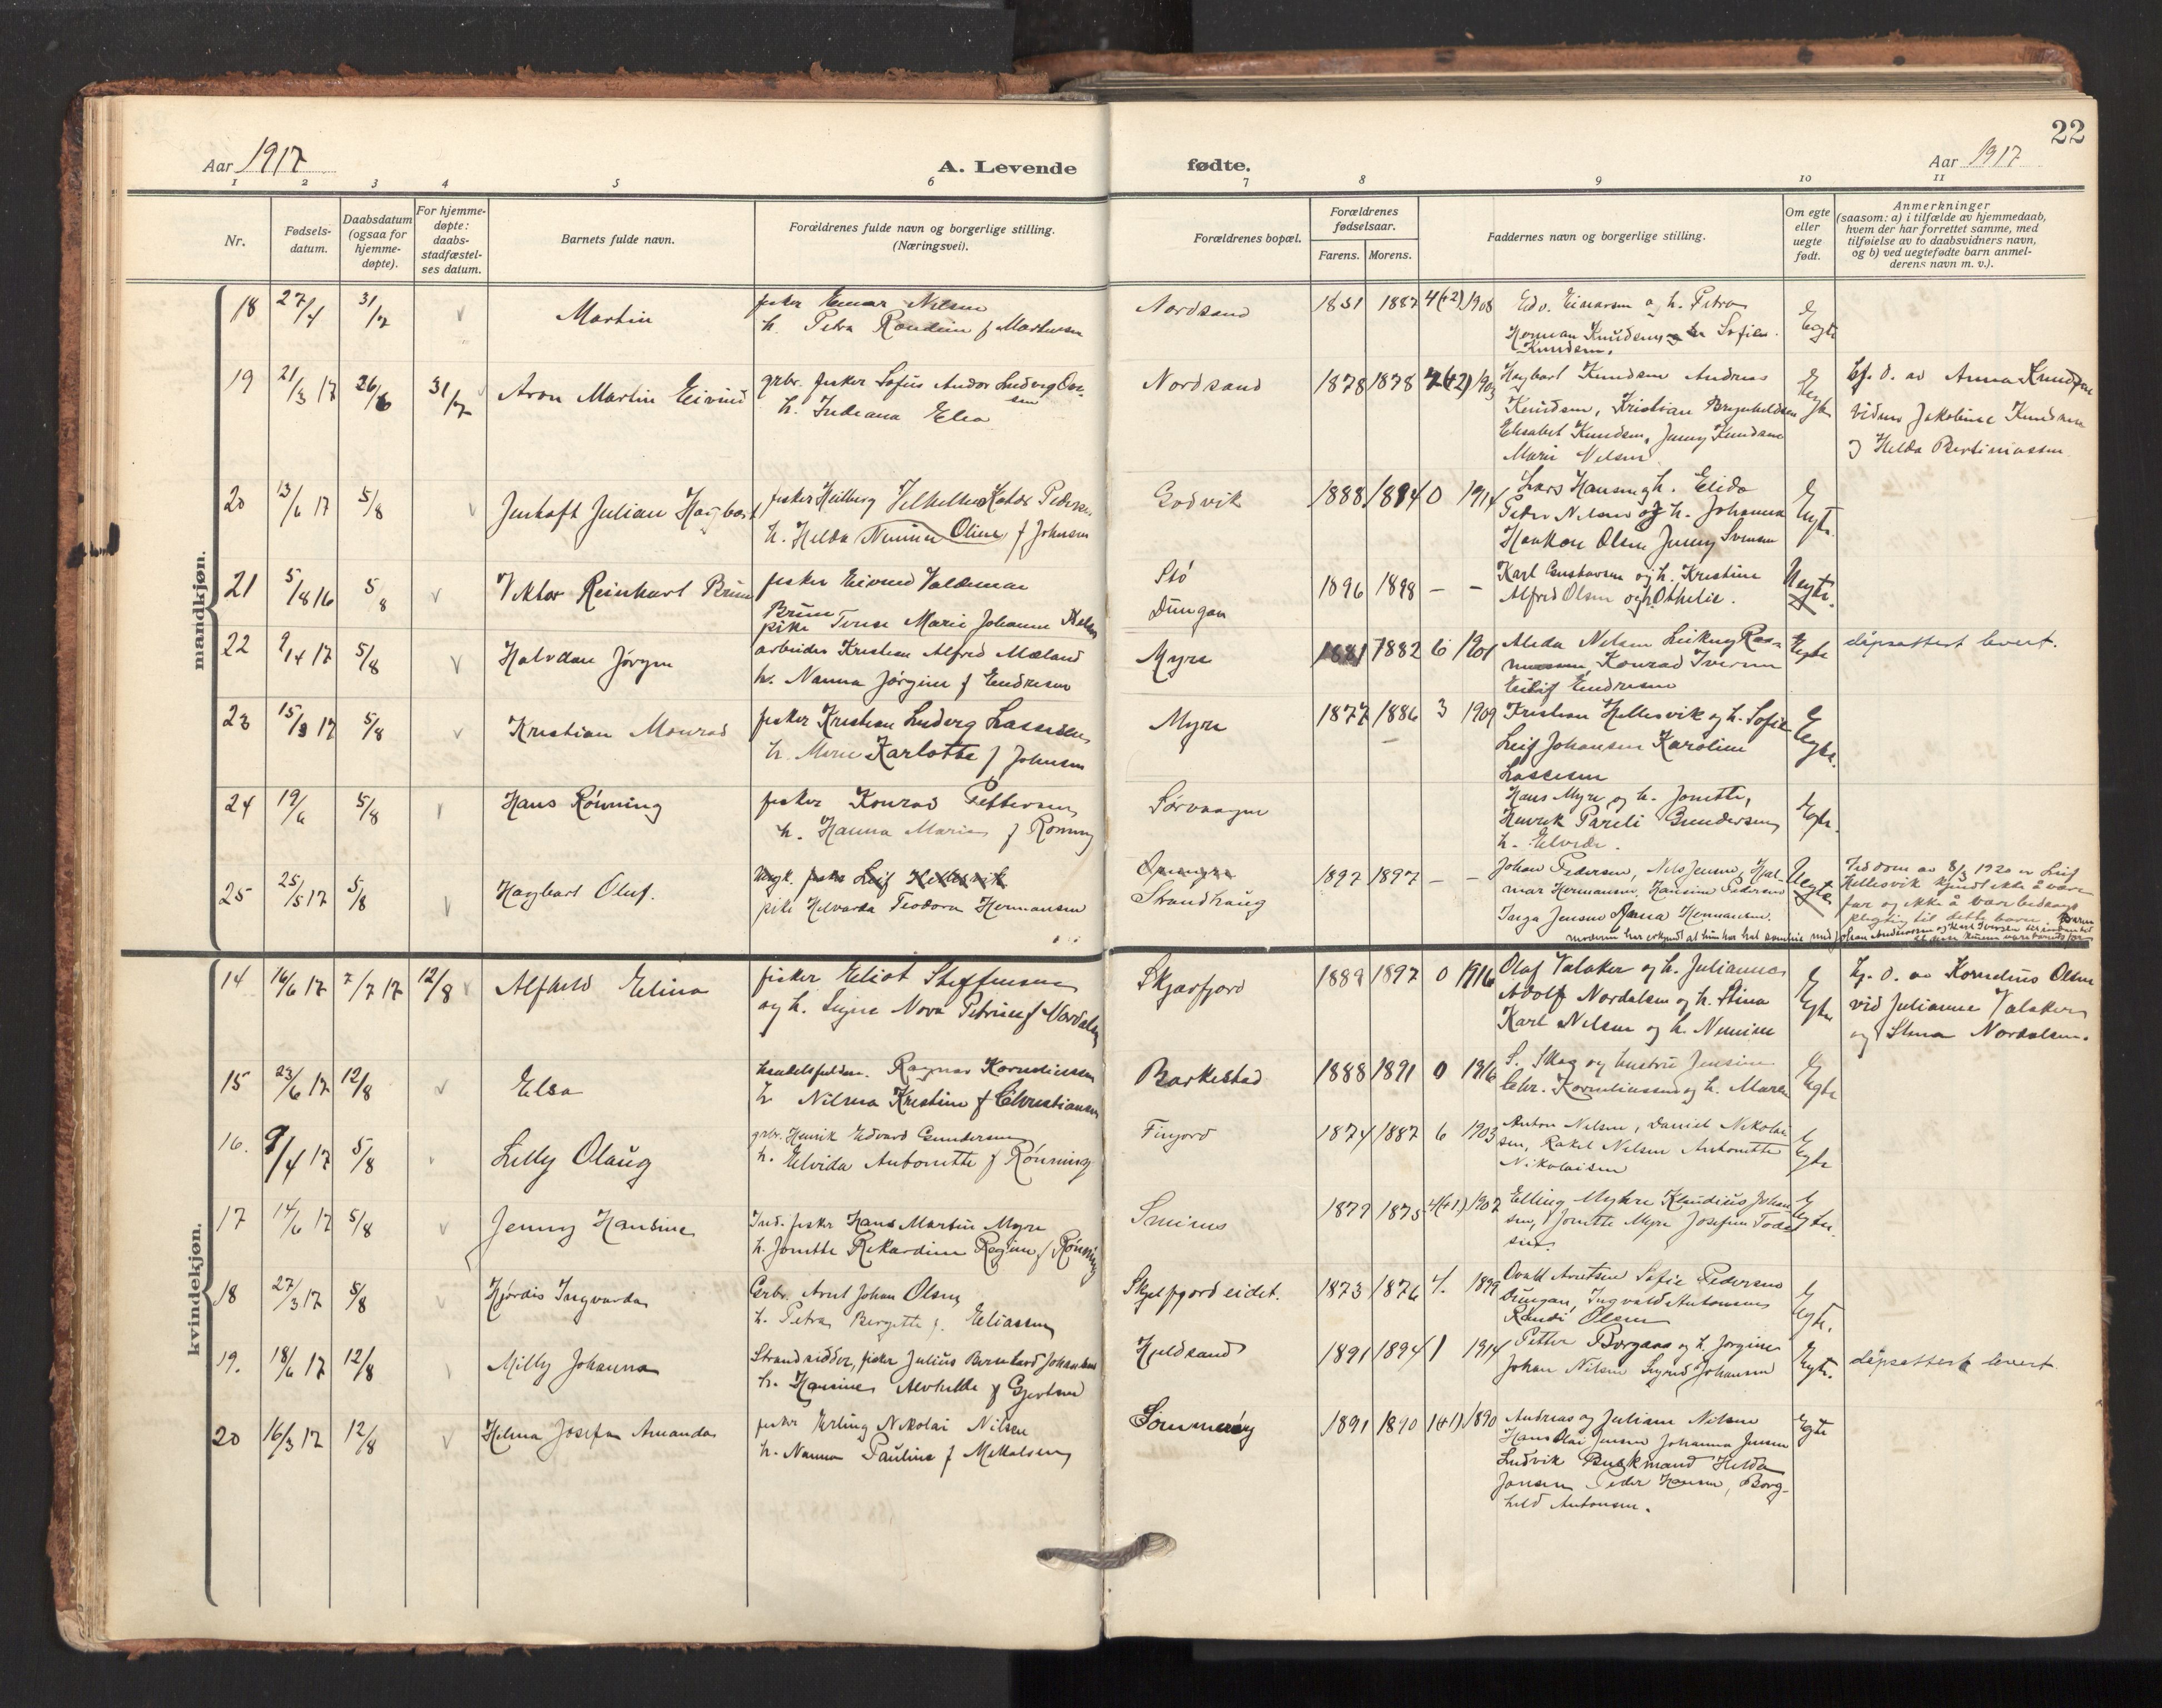 22
Aar 1917
A. Levende
fødte.
Aar 1917
1 2 3 4 5 6 7 8 9 10 11
Nr.
Fødsels-
datum.
Daabsdatum
(ogsaa for
hjemme-
døpte).
For hjemme-
døpte:
daabs-
stadfæstel-
ses datum.
Barnets fulde navn.
Forældrenes fulde navn og borgerlige stilling.
(Næringsvei).
Forældrenes bopæl.
Forældrenes
fødselsaar.
Farens. Morens.
Faddernes navn og borgerlige stilling.
Om egte
eller
uegte
født.
Anmerkninger
(saasom: a) i tilfælde av hjemmedaab,
hvem der har forrettet samme, med
tilføielse av to daabsvidners navn,
og b) ved uegtefødte barn anmel-
derens navn m. v.).
mandkjøn.
18 27/4 31/7 Martin
fisker Einar Nilsen
h. Petra
Nordsand 1887 4(+2) 1908
Edv. Einarsen og h. Petra
Herman Knudsen Sofie
Knudsen.
Egte
19 21/3 17 26/6 31/7 Aron Martin Eivind
grbr. fisker Sofus Andor Ludvig
h. Indiana
Nordsand 1878 1878
Hagbart Knudsen Andreas
Knudsen, Kristian
Elisabet Knudsen, Jenny Knudsen
Marie Nelsen
hj. d. av Anna Knudsen
vidner Jakobine Knudsen
og Helda
20 13/6 17 5/8 Julian Hagbart
fisker Heilberg Vilhelm Pedersen
h. Helda Oline f Johnsen
Godvik 1888 1894 0 1914
Lars Hansen og h. Elida
Peder Nilsen og h. Johanna
Haakon Olsen Jenny Svensen
Egte
21 5/8 16 5/8 Viktor Reinhart Brun
fisker Eivind Valdemar
Brun
pike Marie Johanne
Stø
Dungan
1896 1898 – –
Karl Gustavsen og h. Kristine
Alfred Olsen og h. Othelie.
Uegte.
22 9/4 17 5/8 Halvdan Jørgen
arbeider Kristian Alfred Mæland
h. Nanna Jørgine f Endresen
Myre 1881 1882 6 1901
Alida Nilsen
Konrad Iversen
Endresen
Egte
dåpsattest levert.
23 15/3 17 5/8 Kristian Monrad
fisker Kristian Ludvig Lassesen
h. Karlotte f Johnsen
Myre 1877 1886 3 1909
Kristian Hellesvik og h. Sofie
Leif Johansen Karoline
Lassesen
Egte.
24 19/6 5/8 Hans Rønning
fisker Konrad Pettersen
h. Hanna Marie f Rønning
Sørvaagen
Hans Myre og h. Jonette,
Henrik Pareli Gundersen
h. Elvide.
Egte.
25 25/5 17 5/8 Hagbart Oluf.
Ungk. fisker Leif Hellesvik
pike Helvarda Teodora Hermansen
Strandhaug
1897 1897 – –
Johan Pedersen, Nils Jensen, Hjal-
mar Hermansen, Hansine Pedersen
Inga Jensen Anna Hermansen.
Uegte
Ved dom av 8/3 1920 er Leif
Hellesvik kjendt ikke å være
far og ikke å være bidrags
pligtig til dette barn.
kvindekjøn.
14 16/6 17 7/7 17 12/8 Alfhild Elina
fisker Eliot Steffensen
og h. Signe Nora Petrine f Nordalsen
Skjærfjord 1889 1897 0 1916
Olaf Valaker og h. Julianna
Adolf Nordalsen og h. Stina
Karl Nilsen og h. Nimine
Egte
hj. d. av Kornelius Olsen
vid Julianne Valaker
og Stina Nordalsen.
15 23/6 17 12/8 Elsa
handelsfuldm. Ragnar Korneliussen
h. Nilsina Kristine f Christiansen
Barkestad 1888 1891 0 1916
S. Skog og hustru Jensine
Chr. Korneliussen og h. Maren
Egte
16. 9/4 17 5/8 Lilly Olaug
grbr. Henrik Edvard Gundersen
h. Elvida Antonette f Rønning
Finjord 1874 1887 6 1903
Anton Nilsen, Daniel Nikolai
sen, Rakel Nilsen Antonette
Nikolaisen
Egte
17 14/6 17 5/8 Jenny Hansine
Ind. fisker Hans Martin Myre
h. Jonette Rikardine Regine f Rønning
Smines 1877 1875 4(+1) 1907
Elling Myhre Klaudius Johan
sen, Jonette Myre Josefine
Egte.
18 27/3 17 5/8 Hjørdis Ingvarda
Grbr. Arnt Johan Olsen
h. Petra Bergette f. Eliassen
Skjelfjordeidet. 1873 1876 4. 1899
Arntsen Sofie Pedersen
Dungan, Ingvald Antonsen
Randi Olsen
Egte.
19. 18/6 17 12/8 Milly Johanna
Strandsidder, fisker Julius Bernhard Johansen
h. Hansine Alvhilde f Gjertsen
Kjeldsand 1891 1894 1 1914
Petter Borgaas og h. Jørgine
Johan Nilsen Sigrid Johansen
Egte.
dåpsattest levert.
20 16/3 17 12/8 Helma Josefa Amanda
fisker Erling Nikolai Nilsen
h. Nanna Pauline f Mikalsen
Sommerøy 1891 1890 1(+1) 1890
Andreas og Juliane Nilsen
Hans Olai Jensen Johanna Jensen
Ludvik Buskmand Helda
Jansen Peder Hansen, Borg-
hild Antonsen.
Egte